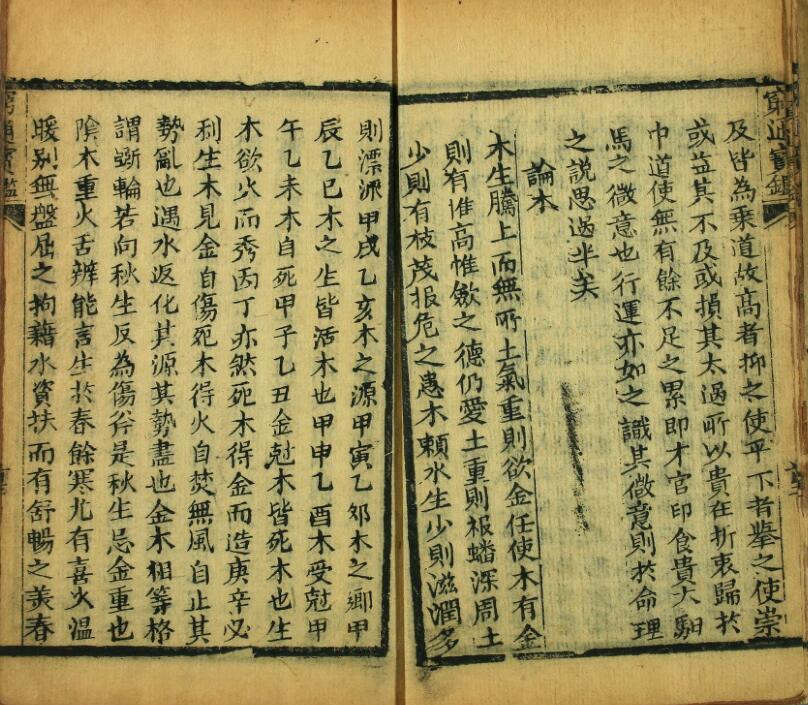 窮通寳鑑
及皆為乗道故高者抑之使平下者擧之使崇
或益其不及或損其太過所以貴在折衷歸於
中道使無有餘不足之累即才官印食貴人馹
馬之微意也行運亦如之識其微意則於命理
之説思過半矣
論木
木生騰上而無所止氣重則欲金任使木有金
則有惟高惟斂之德仍愛土重則根蟠深周土
少則有枝茂根危之患木賴水生少則滋潤多
則漂流甲戌乙亥木之源甲寅乙卯木之鄉甲
辰乙巳木之生皆活木也甲申乙酉木受尅甲
午乙未木自死甲子乙丑金尅木皆死木也生
木欲火而秀丙丁亦然死木得金而造庚辛必
利生木見金自傷死木得火自焚無風自止其
勢亂也遇水返化其源其勢盡也金木相等格
謂斲輪若向秋生反為傷斧是秋生忌金重也
陰木重火舌辨能言生於春餘寒尤有喜火溫
暖别無盤屈之拘藉水資扶而有舒暢之美春
窮通寳鑑